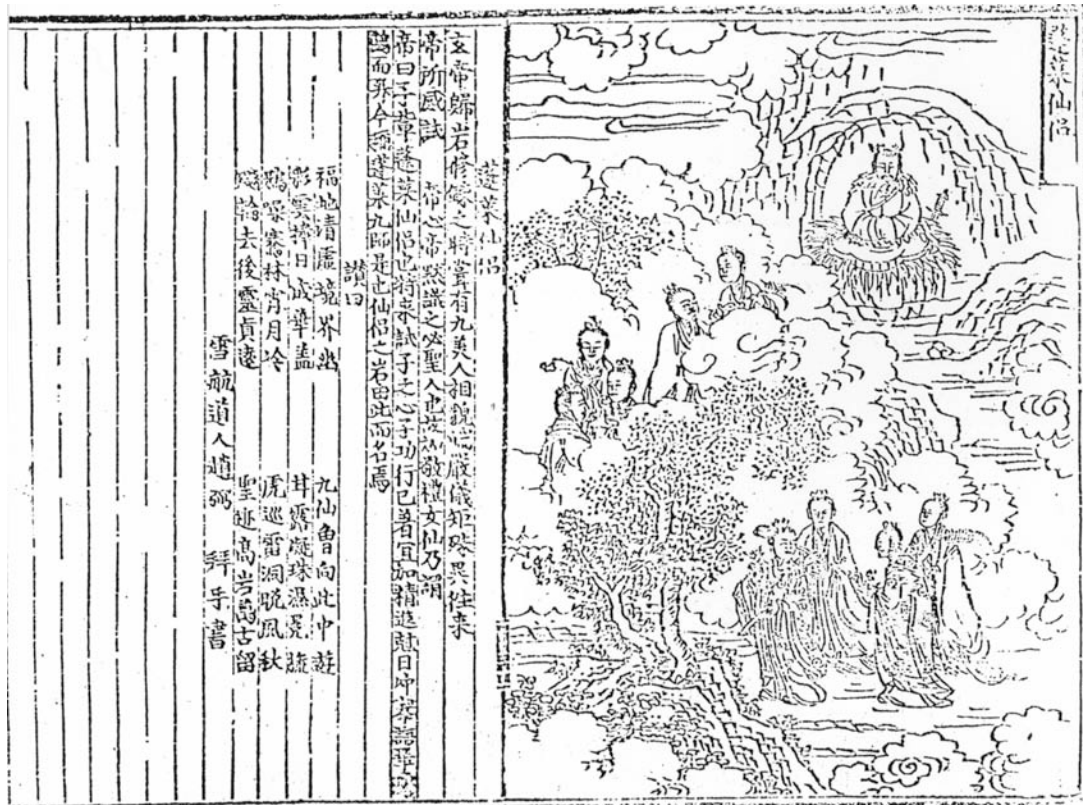 蓬萊仙侶
蓬萊仙侶
玄帝歸岩修煉之時嘗有九美人相貌 嚴儀矩殊異往來
帝所感試 帝心帝默識之必聖人也 敬禮女仙乃謂
帝曰子 蓬萊仙侶也特來試子之心子功行已著宜加精進 日冲
而昇今 蓬萊九師是也仙侶之岩由此而名焉
讃曰
福地清虛境界幽 九仙曾向此中遊
彩雲 日成華盖 甘露凝珠濕冕旒
噪寒林宵月冷 虎巡雷洞晚風秋
去後靈真遠 聖跡高岩萬古留
雪航道人趙弼 拜手書